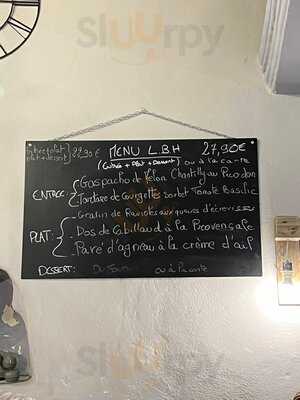 Sluurpy
MENU L.B.H 27,90€
Entrée + plat 22,90€
plat + dessert
(Entrée + Plat + Dessert) ou à la carte
ENTREE: Gaspacho de Melon Chantilly au Picodon
Tartare de Courgette sorbet Tomate Basilic
Gratin de Ravioles aux queues d'écrevisses
PLAT: Dos de Cabillaud à la Provençale
Pavé d'agneau à la crème d'ail
DESSERT: Du Jour ou à la carte
Sluurpy